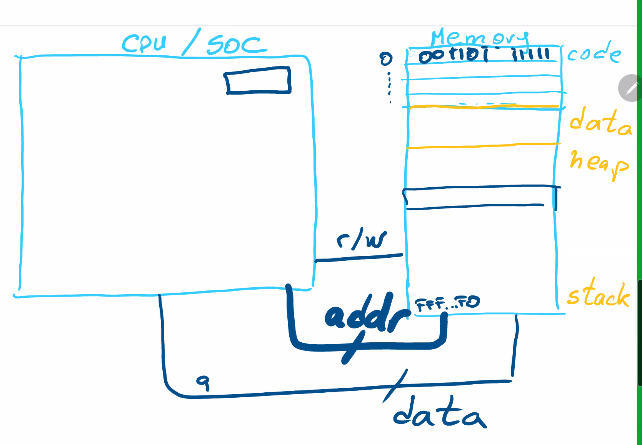 CPU / SOC
Memory
0
001101 11111
code
data
heap
r/w
stack
FFF...F0
addr
9
data